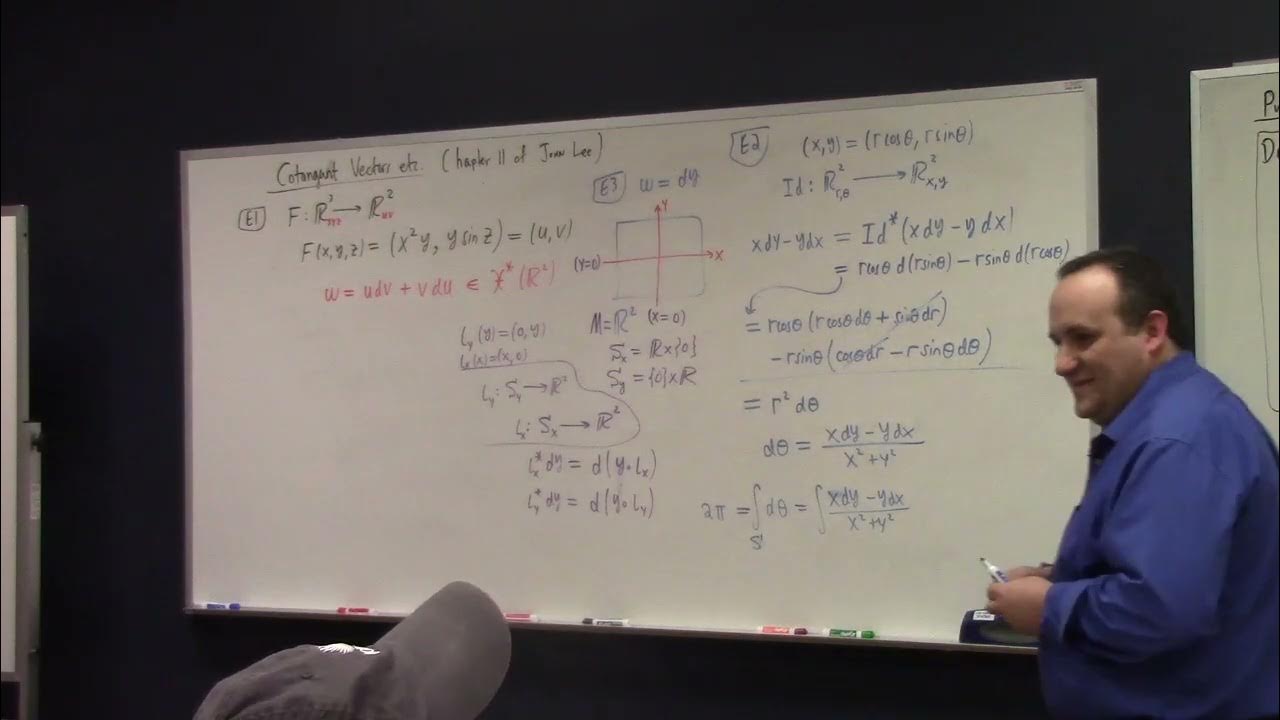 Cotangent Vectors etc. (Chapter 11 of John Lee)
E1 F: ℝ²xyz → ℝ²uv
F(x,y,z) = (x²y, y sin z) = (u,v)
w = udv + vdu ∈ 𝔛*(ℝ²)
E3 w = dy
y
x
(y=0)
M = ℝ² (x=0)
Sx = ℝx{0}
Sy = {0}xℝ
ιy(y) = (0,y)
ιx(x) = (x,0)
ιy: Sy → ℝ²
ιx: Sx → ℝ²
ιx* dy = d(y∘ιx)
ιy* dy = d(y∘ιy)
E2 (x,y) = (r cosθ, r sinθ)
Id: ℝ²r,θ → ℝ²x,y
xdy - ydx = Id*(x dy - y dx)
= r cosθ d(r sinθ) - r sinθ d(r cosθ)
= r cosθ (r cosθ dθ + sinθ dr)
- r sinθ (cosθ dr - r sinθ dθ)
= r² dθ
dθ = (xdy - ydx)/(x² + y²)
2π = ∫S dθ = ∫ (xdy - ydx)/(x² + y²)